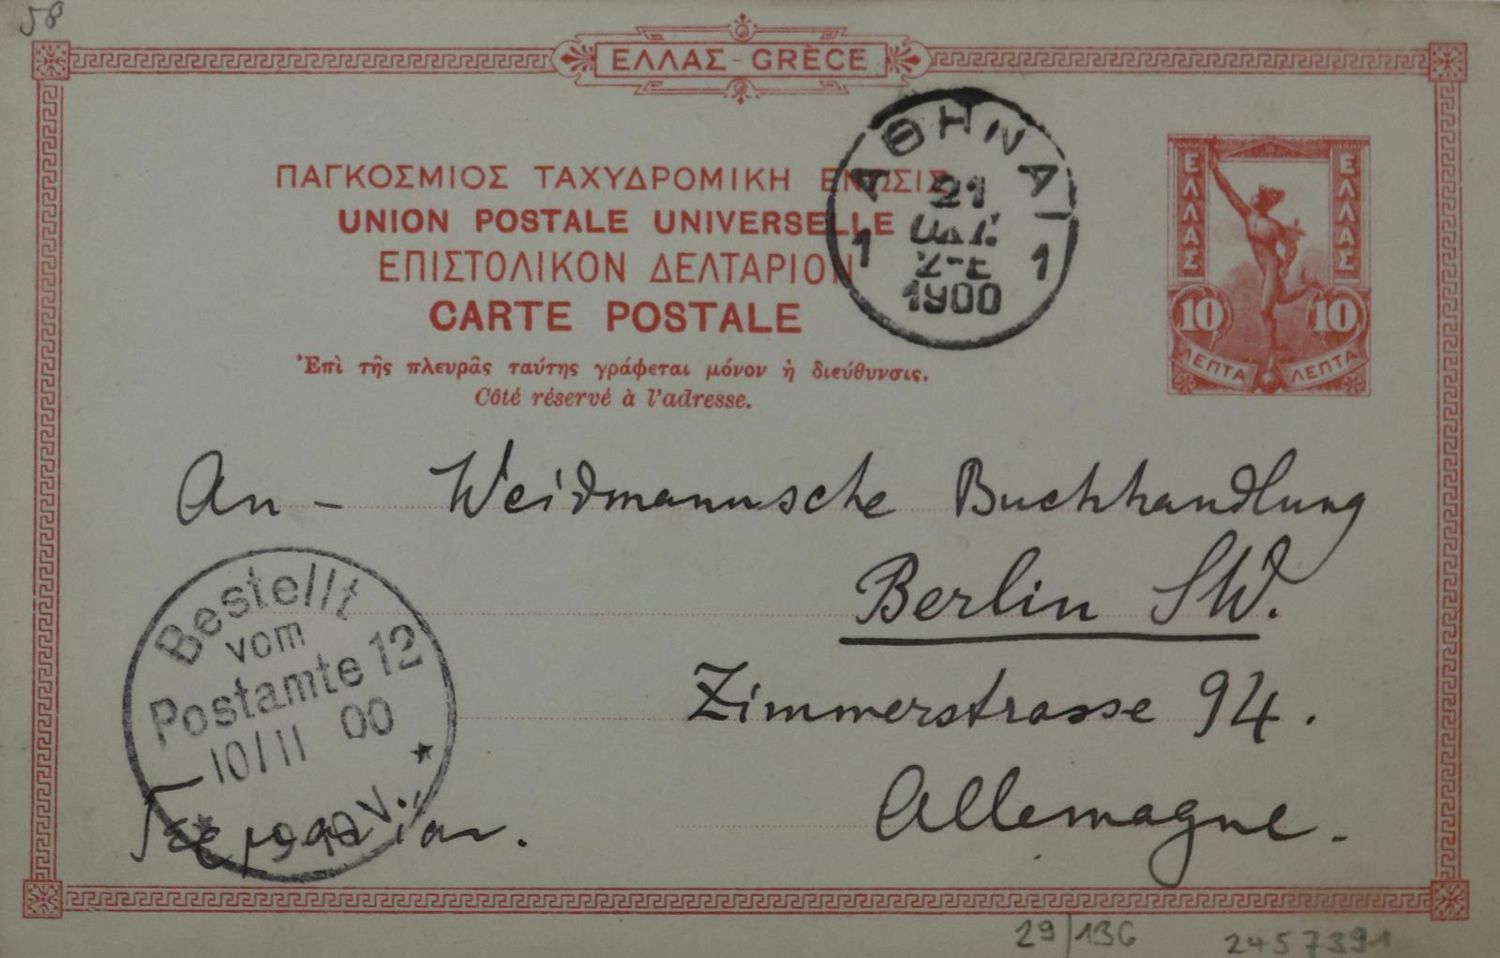 58
ΕΛΛΑΣ - GRÈCE
ΠΑΓΚΟΣΜΙΟΣ ΤΑΧΥΔΡΟΜΙΚΗ ΕΝΩΣΙΣ
UNION POSTALE UNIVERSELLE
ΕΠΙΣΤΟΛΙΚΟΝ ΔΕΛΤΑΡΙΟΝ
CARTE POSTALE
Ἐπὶ τῆς πλευρᾶς ταύτης γράφεται μόνον ἡ διεύθυνσις.
Côté réservé à l'adresse.
ΑΘΗΝΑΙ
21
1 1
1900
ΕΛΛΑΣ ΕΛΛΑΣ
10 10
ΛΕΠΤΑ ΛΕΠΤΑ
An - Weidmannsche Buchhandlung
Berlin SW.
Zimmerstrasse 94.
Allemagne.
Bestellt
vom
Postamte 12
10/11 00
Γερμανίαν.
29/136
2457391